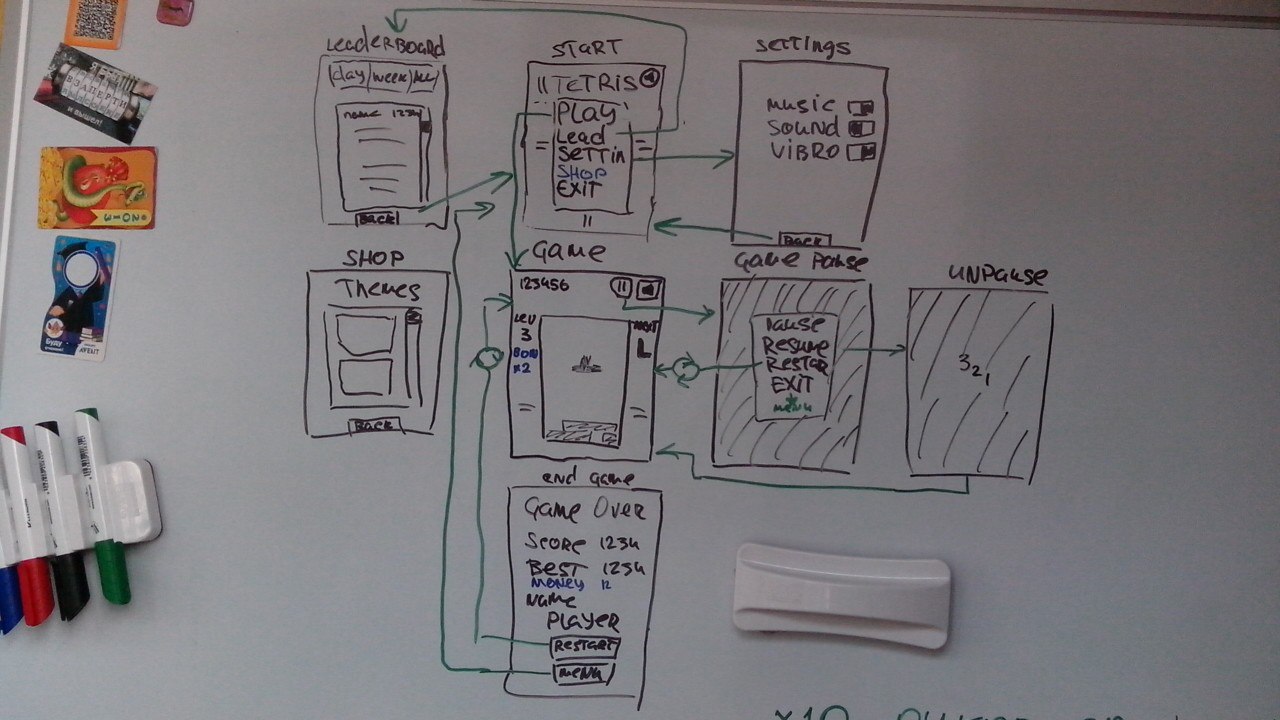 LEADERBOARD
day week ALL
name 1234
BACK
START
TETRIS
PLAY
Lead
SETTIN
SHOP
EXIT
SETTINGS
MUSIC
SOUND
VIBRO
BACK
SHOP
Themes
BACK
GAME
123456
LEV
3
BON
x2
NEXT
GAME PAUSE
PAUSE
RESUME
RESTAR
EXIT
MENU
UNPAUSE
321
END GAME
GAME OVER
SCORE 1234
BEST 1234
MONEY 12
NAME
PLAYER
RESTART
MENU
ВЗАПЕРТИ
и вышел!
2013
БУДУ
AVENT
x10